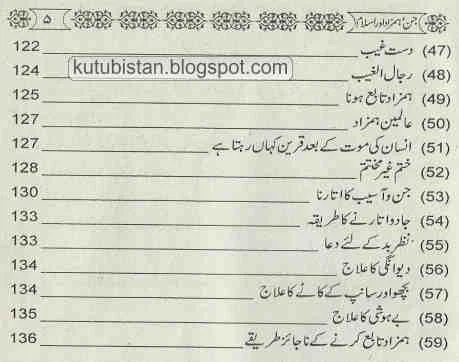 جن، ہمزاد اور اسلام ۵
(47) دست غیب 122
(48) رجال الغیب 124
kutubistan.blogspot.com
(49) ہمزاد تابع ہونا 125
(50) عالمین ہمزاد 127
(51) انسان کی موت کے بعد قرین کہاں رہتا ہے 127
(52) ختم غیر مختتم 128
(53) جن و آسیب کا اتارنا 130
(54) جادو اتارنے کا طریقہ 133
(55) نظر بد کے لئے دعا 133
(56) دیوانگی کا علاج 134
(57) بچھو اور سانپ کے کاٹے کا علاج 134
(58) بے ہوشی کا علاج 135
(59) ہمزاد تابع کرنے کے ناجائز طریقے 136